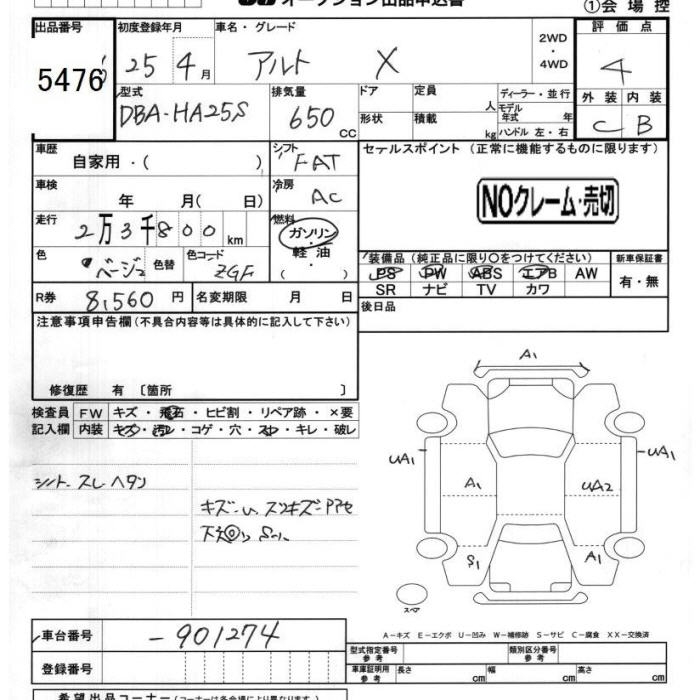 オークション出品申込書
①会場控
出品番号 初度登録年月 車名・グレード 2WD・4WD 評価点
5476 25 4月 アルト X 4
型式 排気量 ドア 定員 人 ディーラー・並行 外装 内装
DBA-HA25S 650 CC 形状 積載 kg モデル年式 年 C B
ハンドル 左・右
車歴 自家用・( ) シフト FAT セールスポイント (正常に機能するものに限ります)
車検 年 月( 日) 冷房 AC NOクレーム・売切
走行 2万3千800km 燃料 ガソリン・軽油・( )
色 ベージュ 色替 色コード ZGF 装備品 (純正品に限り○をつけてください) 新車保証書
PS PW ABS エアB AW 有・無
SR ナビ TV カワ
R券 8,560円 名変期限 月 日 後日品
注意事項申告欄 (不具合内容等は具体的に記入して下さい)
修復歴 有 〔箇所 〕
検査員 FW キズ・飛石・ヒビ割・リペア跡・×要
記入欄 内装 キズ・汚レ・コゲ・穴・スレ・キレ・破レ
シート スレ ヘタリ
A1
UA1 A1 UA2 UA1
S1 A1
スペア
A-キズ E-エクボ U-凹み W-補修跡 S-サビ C-腐食 XX-交換済
車台番号 -901274 型式指定番号 参考 類別区分番号 参考
登録番号 車庫証明用 参考 長さ cm 幅 cm 高さ cm
希望出品コーナー